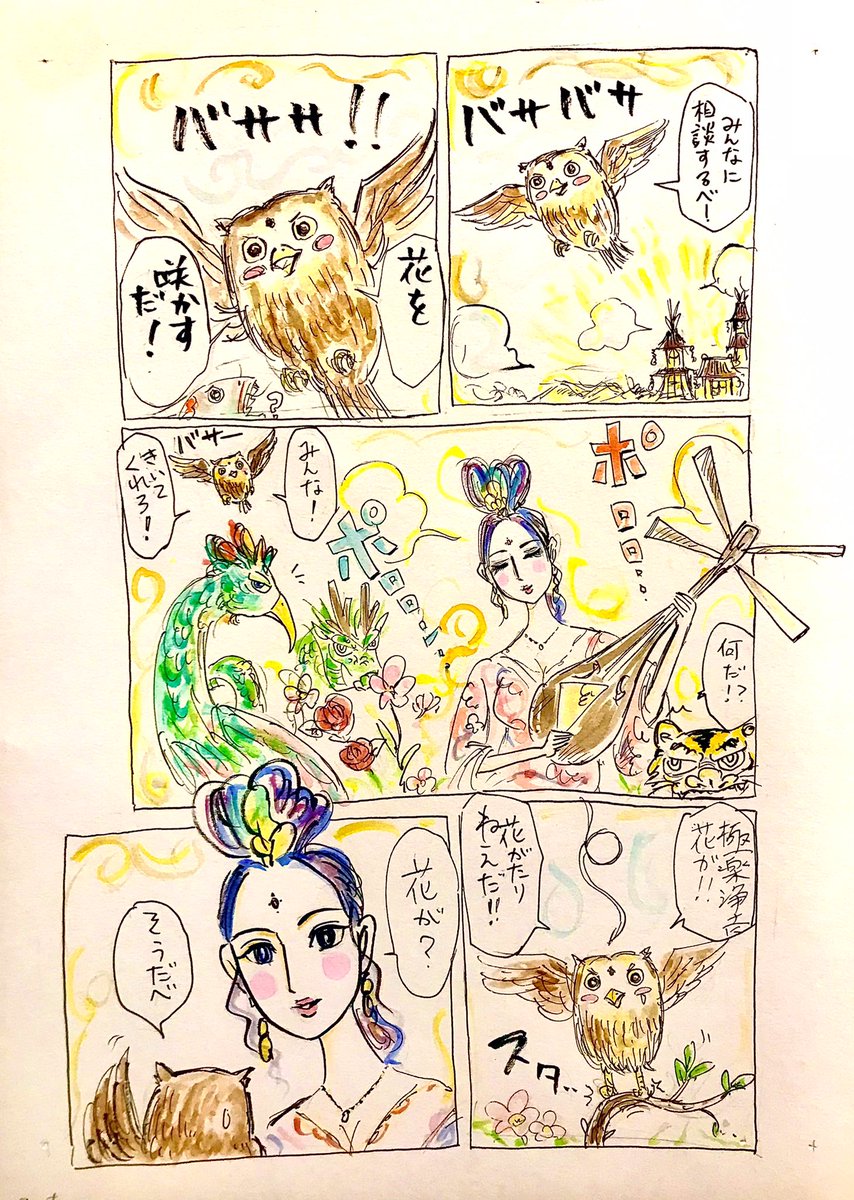 みんなに
相談するべー
バサバサ
バササ!!
花を
咲かす
だ!
?
ポロロロ...
何だ!?
ポロロロ...
みんな!
バサー
きいて
くれろ!
極楽浄土
花が!!
花がたり
ねえだ!!
スタ...
花が?
そうだべ